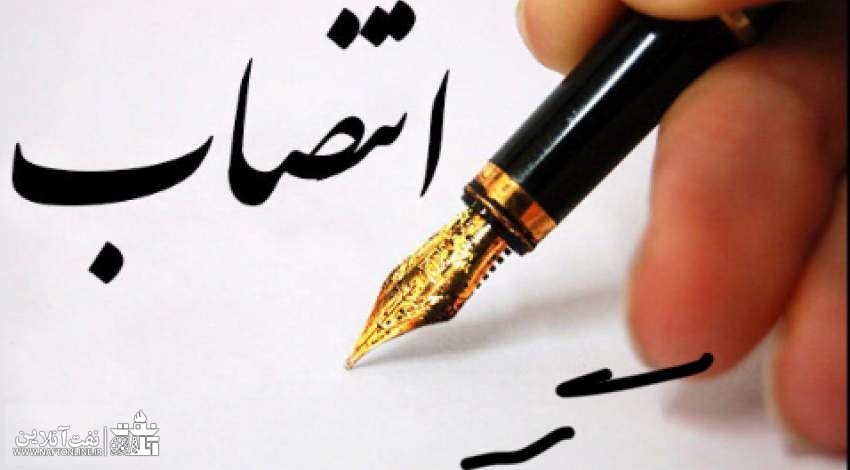 انتصاب
نفت آنلاین
WWW.NAFTONLINE.IR